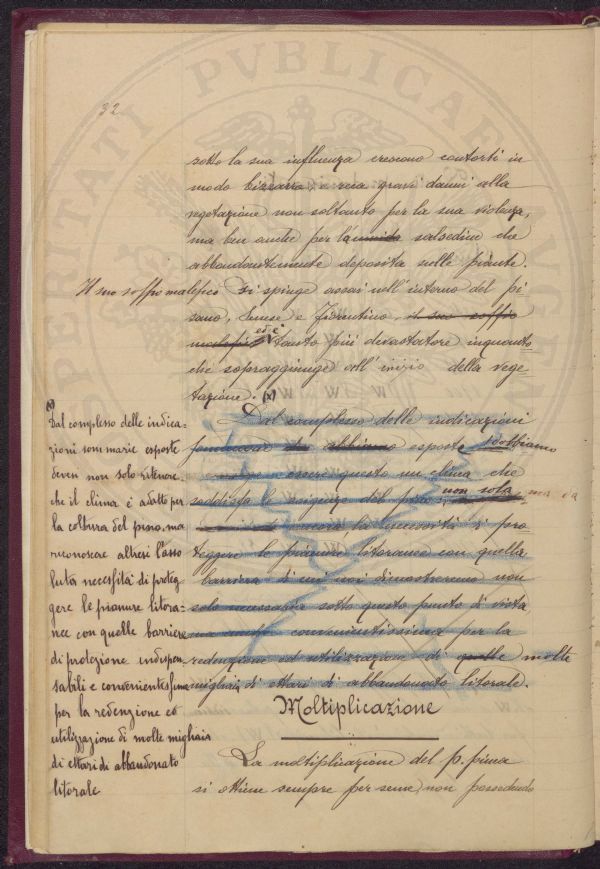 32
sotto la sua influenza crescono contorti in
modo bizzarro, e reca gravi danni alla
vegetazione non soltanto per la sua violenza,
ma ben anche per la umida salsedine che
abbondantemente deposita sulle piante.
Il suo soffio malefico si spinge assai nell'interno del pi
sano, Senese e Fiorentino, il suo soffio
malefico ed è tanto più devastatore inquanto
che sopraggiunge all'inizio della vege-
tazione. (x)
(x)
Dal complesso delle indica=
zioni sommarie esposte
devesi non solo ritenere
che il clima è adatto per
la coltura del pino, ma
riconoscere altresì l'asso
luta necessità di proteg
gere le pianure litora=
nee con quelle barriere
di protezione indispen
sabili e convenientissime
per la redenzione ed
utilizzazione di molte migliaia
di ettari di abbandonato
litorale
Dal complesso delle indicazioni
che abbiamo esposte dobbiamo
essere questo un clima che
soddisfa le esigenze del pino, non solo, ma
la necessità di pro
teggere le pianure litoranee con quella
barriera di cui noi dimostreremo non
solo necessaria sotto questo punto di vista
ma anche convenientissima per la
redenzione ed utilizzazione di quelle molte
migliaia di ettari di abbandonato litorale.
Moltiplicazione
La moltiplicazione del p. pinea
si ottiene sempre per seme, non possedendo